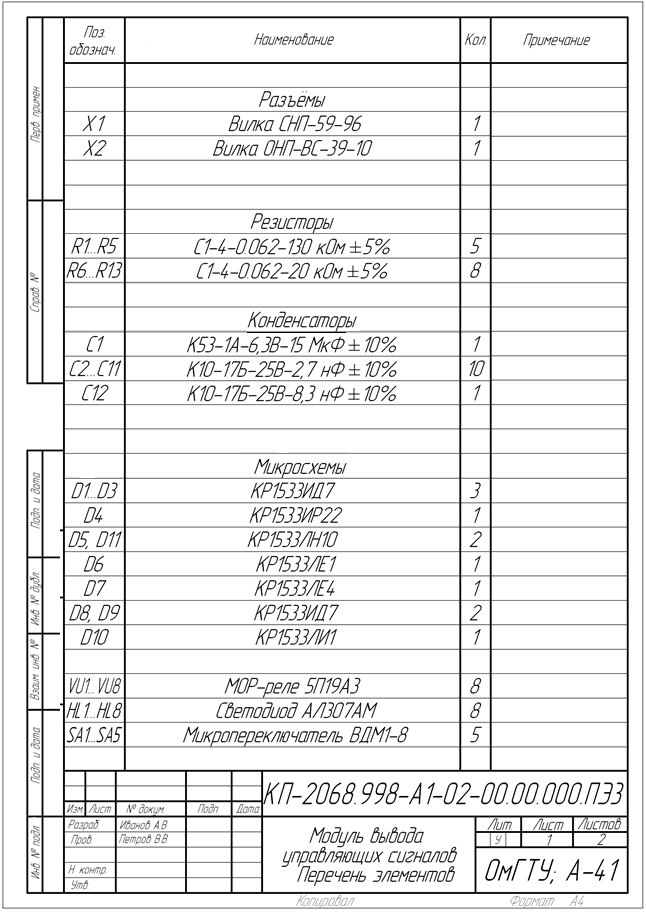 Поз. обознач. Наименование Кол. Примечание
Разъёмы
X1 Вилка СНП-59-96 1
X2 Вилка ОНП-ВС-39-10 1
Резисторы
R1...R5 С1-4-0.062-130 кОм ±5% 5
R6...R13 С1-4-0.062-20 кОм ±5% 8
Конденсаторы
C1 К53-1А-6,3В-15 МкФ ±10% 1
C2...C11 К10-17Б-25В-2,7 нФ ±10% 10
C12 К10-17Б-25В-8,3 нФ ±10% 1
Микросхемы
D1...D3 КР1533ИД7 3
D4 КР1533ИР22 1
D5, D11 КР1533ЛН10 2
D6 КР1533ЛЕ1 1
D7 КР1533ЛЕ4 1
D8, D9 КР1533ИД7 2
D10 КР1533ЛИ1 1
VU1...VU8 МОР-реле 5П19А3 8
HL1...HL8 Светодиод АЛ307АМ 8
SA1...SA5 Микропереключатель ВДМ1-8 5
Перв. примен.
Справ. №
Подп. и дата
Инв. № дубл.
Взаим. инв. №
Подп. и дата
Инв. № подл.
КП-2068.998-А1-02-00.00.000.ПЭ3
Изм. Лист № докум. Подп. Дата
Разраб. Иванов А.В.
Пров. Петров В.В.
Н. контр.
Утв.
Модуль вывода
управляющих сигналов
Перечень элементов
Лит. Лист Листов
У 1 2
ОмГТУ; А-41
Копировал Формат А4